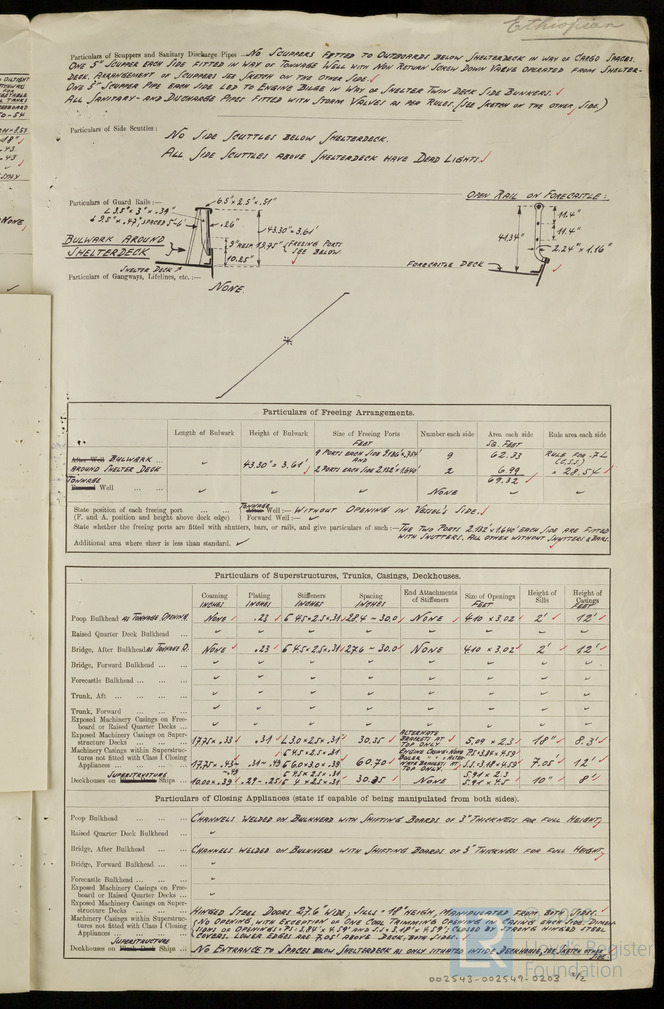 Ethiopian
Particulars of Scuppers and Sanitary Discharge Pipes NO SCUPPERS FITTED TO OUTBOARDS BELOW SHELTERDECK IN WAY OF CARGO SPACES.
ONE 5" SCUPPER EACH SIDE FITTED IN WAY OF TONNAGE WELL WITH NON RETURN SCREW DOWN VALVE OPERATED FROM SHELTER-
DECK. ARRANGEMENT OF SCUPPERS SEE SKETCH ON THE OTHER SIDE.
ONE 5" SCUPPER PIPE EACH SIDE LED TO ENGINE BILGE IN WAY OF SHELTER TWIN DECK SIDE BUNKERS.
ALL SANITARY- AND DISCHARGE PIPES FITTED WITH STORM VALVES AS PER RULES (SEE SKETCH ON THE OTHER SIDE.)
Particulars of Side Scuttles :— NO SIDE SCUTTLES BELOW SHELTERDECK.
ALL SIDE SCUTTLES ABOVE SHELTERDECK HAVE DEAD LIGHTS.
Particulars of Guard Rails :—
6.5" × 2.5" × .51"
.26"
43.30" = 3.61'
10.25"
FREEING PORTS
SEE BELOW
BULWARK AROUND
SHELTERDECK
SHELTER DECK
OPEN RAIL ON FORECASTLE:
11.4"
11.4"
41.34"
2.24" × 1.16"
FORECASTLE DECK
Particulars of Gangways, Lifelines, etc. :—
NONE.
Particulars of Freeing Arrangements.
Length of Bulwark Height of Bulwark Size of Freeing Ports FEET Number each side Area each side SQ. FEET Rule area each side
After Well BULWARK AROUND SHELTER DECK 43.30" = 3.61' 9 PORTS EACH SIDE 9 62.33 RULE FOR .7L
AND (C.S.S.)
2 PORTS EACH SIDE 2.132' × 1.640' 2 6.99 = 28.54
69.32
TONNAGE Well NONE
State position of each freeing port ... ... TONNAGE After Well :— WITHOUT OPENING IN VESSEL'S SIDE.
(F. and A. position and height above deck edge) Forward Well :—
State whether the freeing ports are fitted with shutters, bars, or rails, and give particulars of such :— THE TWO PORTS 2.132' × 1.640' EACH SIDE ARE FITTED
WITH SHUTTERS. ALL OTHER WITHOUT SHUTTERS & BARS.
Additional area where sheer is less than standard.
Particulars of Superstructures, Trunks, Casings, Deckhouses.
Coaming INCHES Plating INCHES Stiffeners INCHES Spacing INCHES End Attachments of Stiffeners Size of Openings FEET Height of Sills Height of Casings FEET
Poop Bulkhead AS TONNAGE OPENING. NONE .23 6 4.5×2.5×.31 28.4 – 30.0 NONE 4.10 × 3.02 2' 12'
Raised Quarter Deck Bulkhead ...
Bridge, After Bulkhead AS TONNAGE O. NONE .23 6 4.5×2.5×.31 27.6 – 30.0 NONE 4.10 × 3.02 2' 12'
Bridge, Forward Bulkhead ...
Forecastle Bulkhead ...
Trunk, Aft ...
Trunk, Forward ...
Exposed Machinery Casings on Free-
board or Raised Quarter Decks ...
Exposed Machinery Casings on Super-
structure Decks ... 17.75 × .33 .31 L 3.0×2.5×.31" 30.35 ALTERNATE BRACKETS AT TOP ONLY 5.09 × 2.3 18" 8.3'
Machinery Casings within Superstruc-
tures not fitted with Class I Closing
Appliances ... 17.75 × .43 .31–.43 60.70 P.S = 3.84 × 4.59 S.S = 3.18 × 4.59 7.05' 12'
Deckhouses on SUPERSTRUCTURE Ships ... 10.00 × .39 .29–.25 30.35 NONE 5.91 × 2.3 10" 8'
Particulars of Closing Appliances (state if capable of being manipulated from both sides).
Poop Bulkhead ... CHANNELS WELDED ON BULKHEAD WITH SHIFTING BOARDS OF 3" THICKNESS FOR FULL HEIGHT,
Raised Quarter Deck Bulkhead ...
Bridge, After Bulkhead ... CHANNELS WELDED ON BULKHEAD WITH SHIFTING BOARDS OF 3" THICKNESS FOR FULL HEIGHT,
Bridge, Forward Bulkhead ...
Forecastle Bulkhead ...
Exposed Machinery Casings on Free-
board or Raised Quarter Decks ...
Exposed Machinery Casings on Super-
structure Decks ... HINGED STEEL DOORS 27.6" WIDE, SILLS = 18" HEIGH, MANIPULATED FROM BOTH SIDES.
Machinery Casings within Superstruc- NO OPENING, WITH EXCEPTION OF ONE COAL TRIMMING OPENING IN CASING EACH SIDE. DIMEN-
tures not fitted with Class I Closing SIONS OF OPENINGS = P.S = 3.84' × 4.59' AND S.S = 3.18' × 4.59'. CLOSED BY STRONG HINGED STEEL
Appliances ... COVERS. LOWER EDGES ARE 7.05' ABOVE DECK, BOTH SIDES.
Deckhouses on SUPERSTRUCTURE Ships ... NO ENTRANCE TO SPACES BELOW SHELTERDECK AS ONLY SITUATED INSIDE DECKHOUSE, SEE SKETCH OTHER SIDE.
LR
Lloyd's Register
Foundation
002543-002549-0203 ½